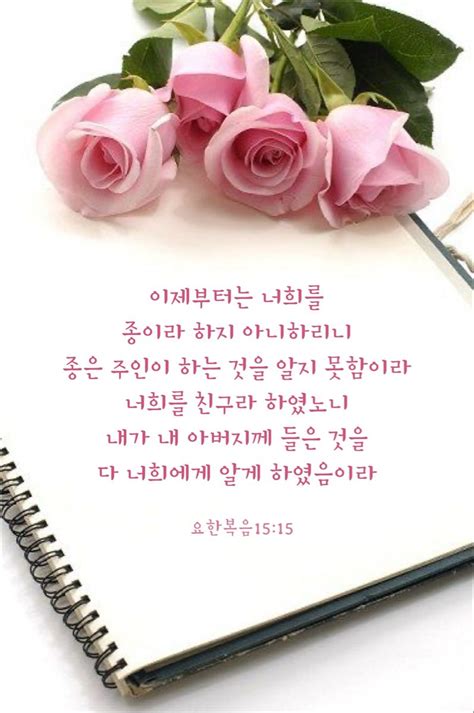 이제부터는 너희를
종이라 하지 아니하리니
종은 주인이 하는 것을 알지 못함이라
너희를 친구라 하였노니
내가 내 아버지께 들은 것을
다 너희에게 알게 하였음이라
요한복음15:15